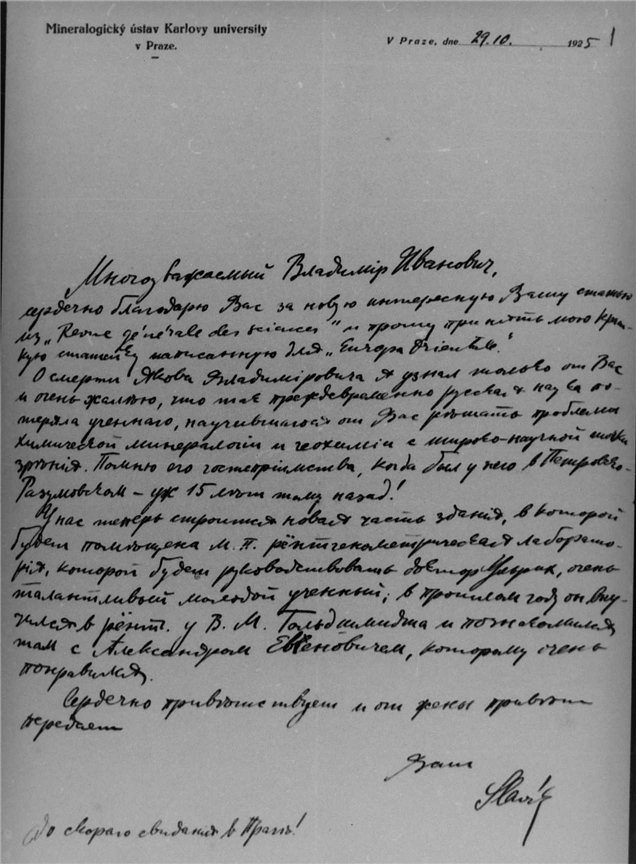 Mineralogický ústav Karlovy university
v Praze.
V Praze, dne 29.10. 1925
1
Многоуважаемый Владимір Иванович,
сердечно благодарю Вас за новую интересную Вашу статью
из „Revue générale des sciences“ и прошу принять мою крат-
кую статейку написанную для „Europa Orientale“.
О смерти Якова Владиміровича я узнал только от Вас
и очень жалѣю, что так преждевременно русская наука по-
теряла ученнаго, научившагося от Вас рѣшать проблемы
химической минералогіи и геохиміи с широко-научной точки
зрѣнія. Помню его гостепріимства, когда был у него в Петровско-
Разумовском – уж 15 лѣт тому назад!
У нас теперь строится новая часть зданія, в которой
будет помѣщена м. п. рёнтгенометрическая лаборато-
рія, которой будет руководствовать доктор Ульрих, очень
талантливый молодой ученный; в прошлом году он
учился в у В. М. Гольдшмидта и познакомился
там с Александром Евгеновичем, которому очень
понравился.
Сердечно привѣтствует и от жены привѣт
передает
Ваш
Slavík
До скораго свиданія в Прагѣ!